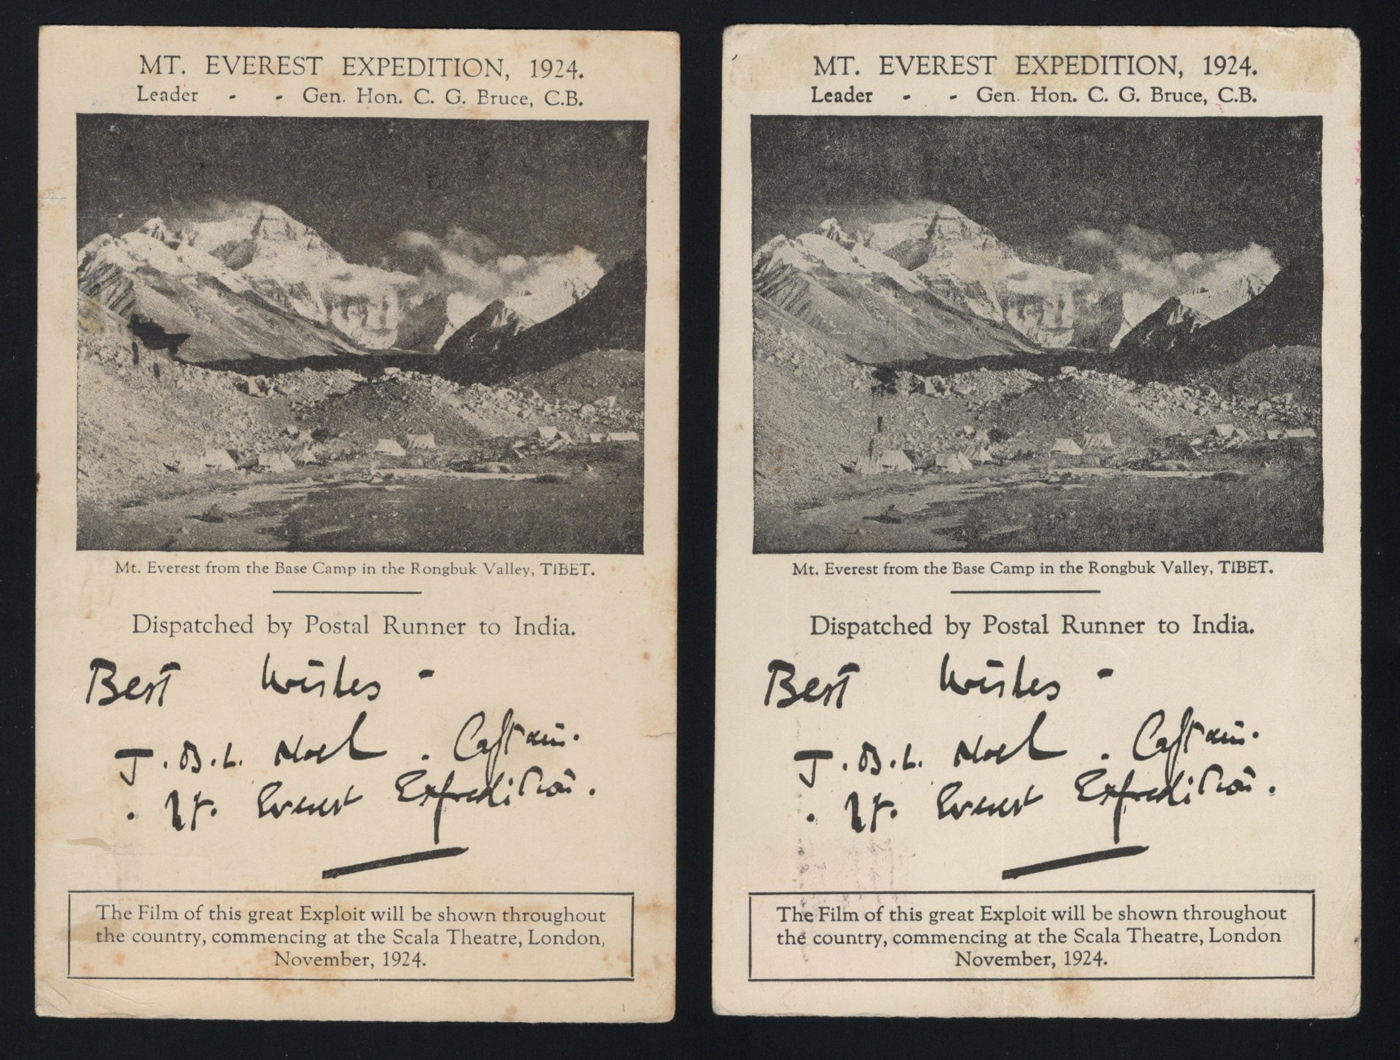 MT. EVEREST EXPEDITION, 1924.
Leader - - Gen. Hon. C. G. Bruce, C.B.
Mt. Everest from the Base Camp in the Rongbuk Valley, TIBET.
Dispatched by Postal Runner to India.
Best Wishes -
J.B.L. Noel . Captain.
. Mt. Everest Expedition.
The Film of this great Exploit will be shown throughout
the country, commencing at the Scala Theatre, London,
November, 1924.
MT. EVEREST EXPEDITION, 1924.
Leader - - Gen. Hon. C. G. Bruce, C.B.
Mt. Everest from the Base Camp in the Rongbuk Valley, TIBET.
Dispatched by Postal Runner to India.
Best Wishes -
J.B.L. Noel . Captain.
. Mt. Everest Expedition.
The Film of this great Exploit will be shown throughout
the country, commencing at the Scala Theatre, London
November, 1924.